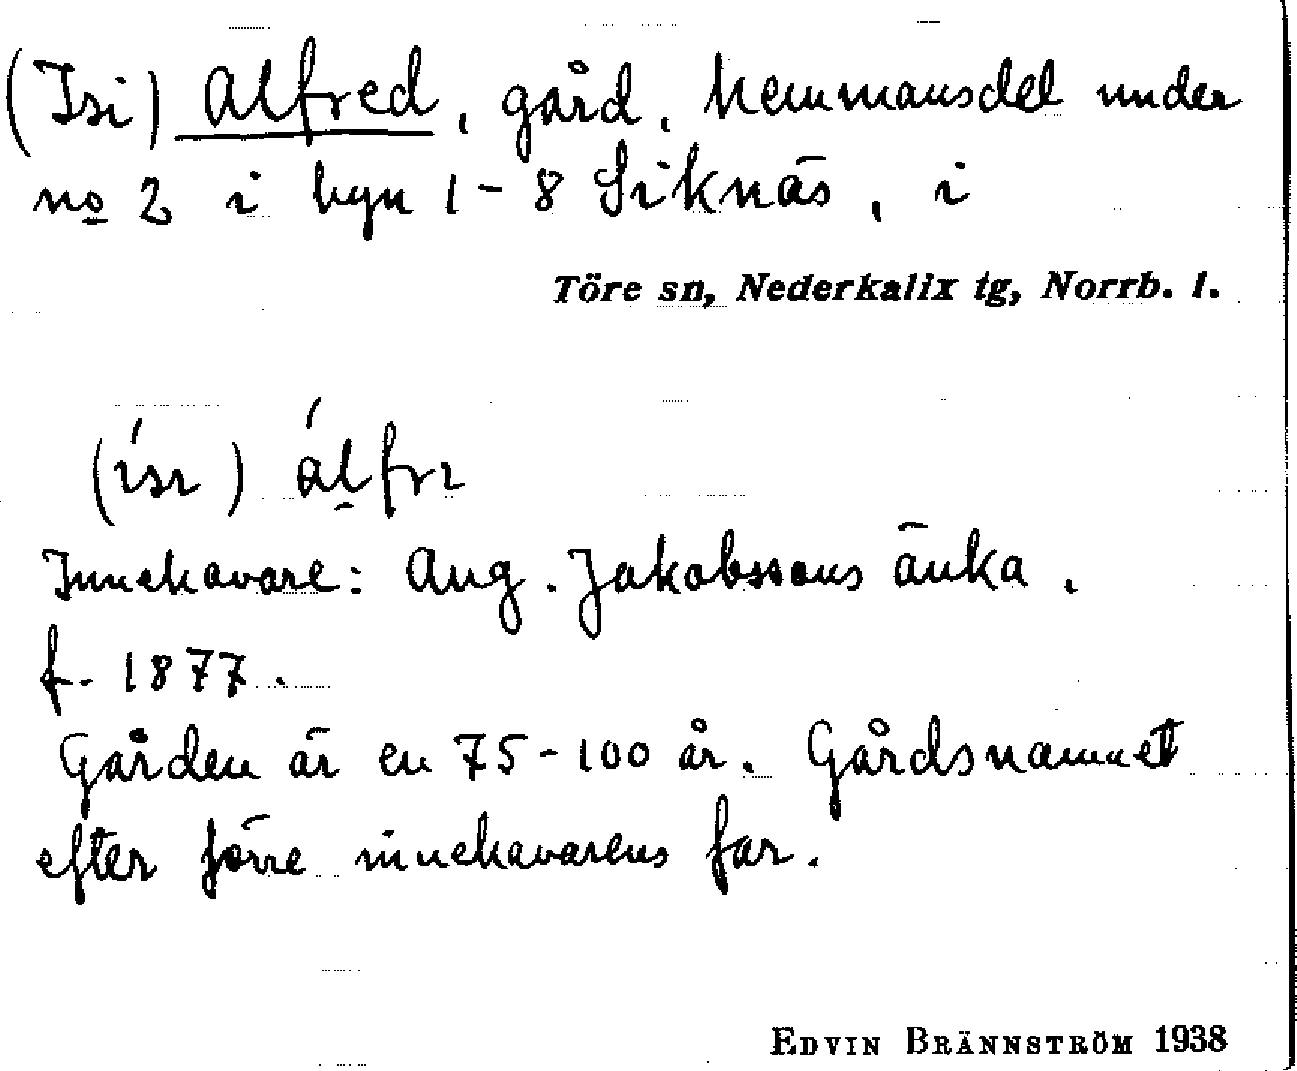 (Isi) Alfred, gård, hemmansdel under
no 2 i byn 1-8 Siknäs, i
Töre sn, Nederkalix tg, Norrb. l.
(ísı) álfrı
Innehavare: Aug. Jakobssons änka,
f. 1877.
Gården är en 75-100 år. Gårdsnamnet
efter förre innehavarens far.
EDVIN BRÄNNSTRÖM 1938